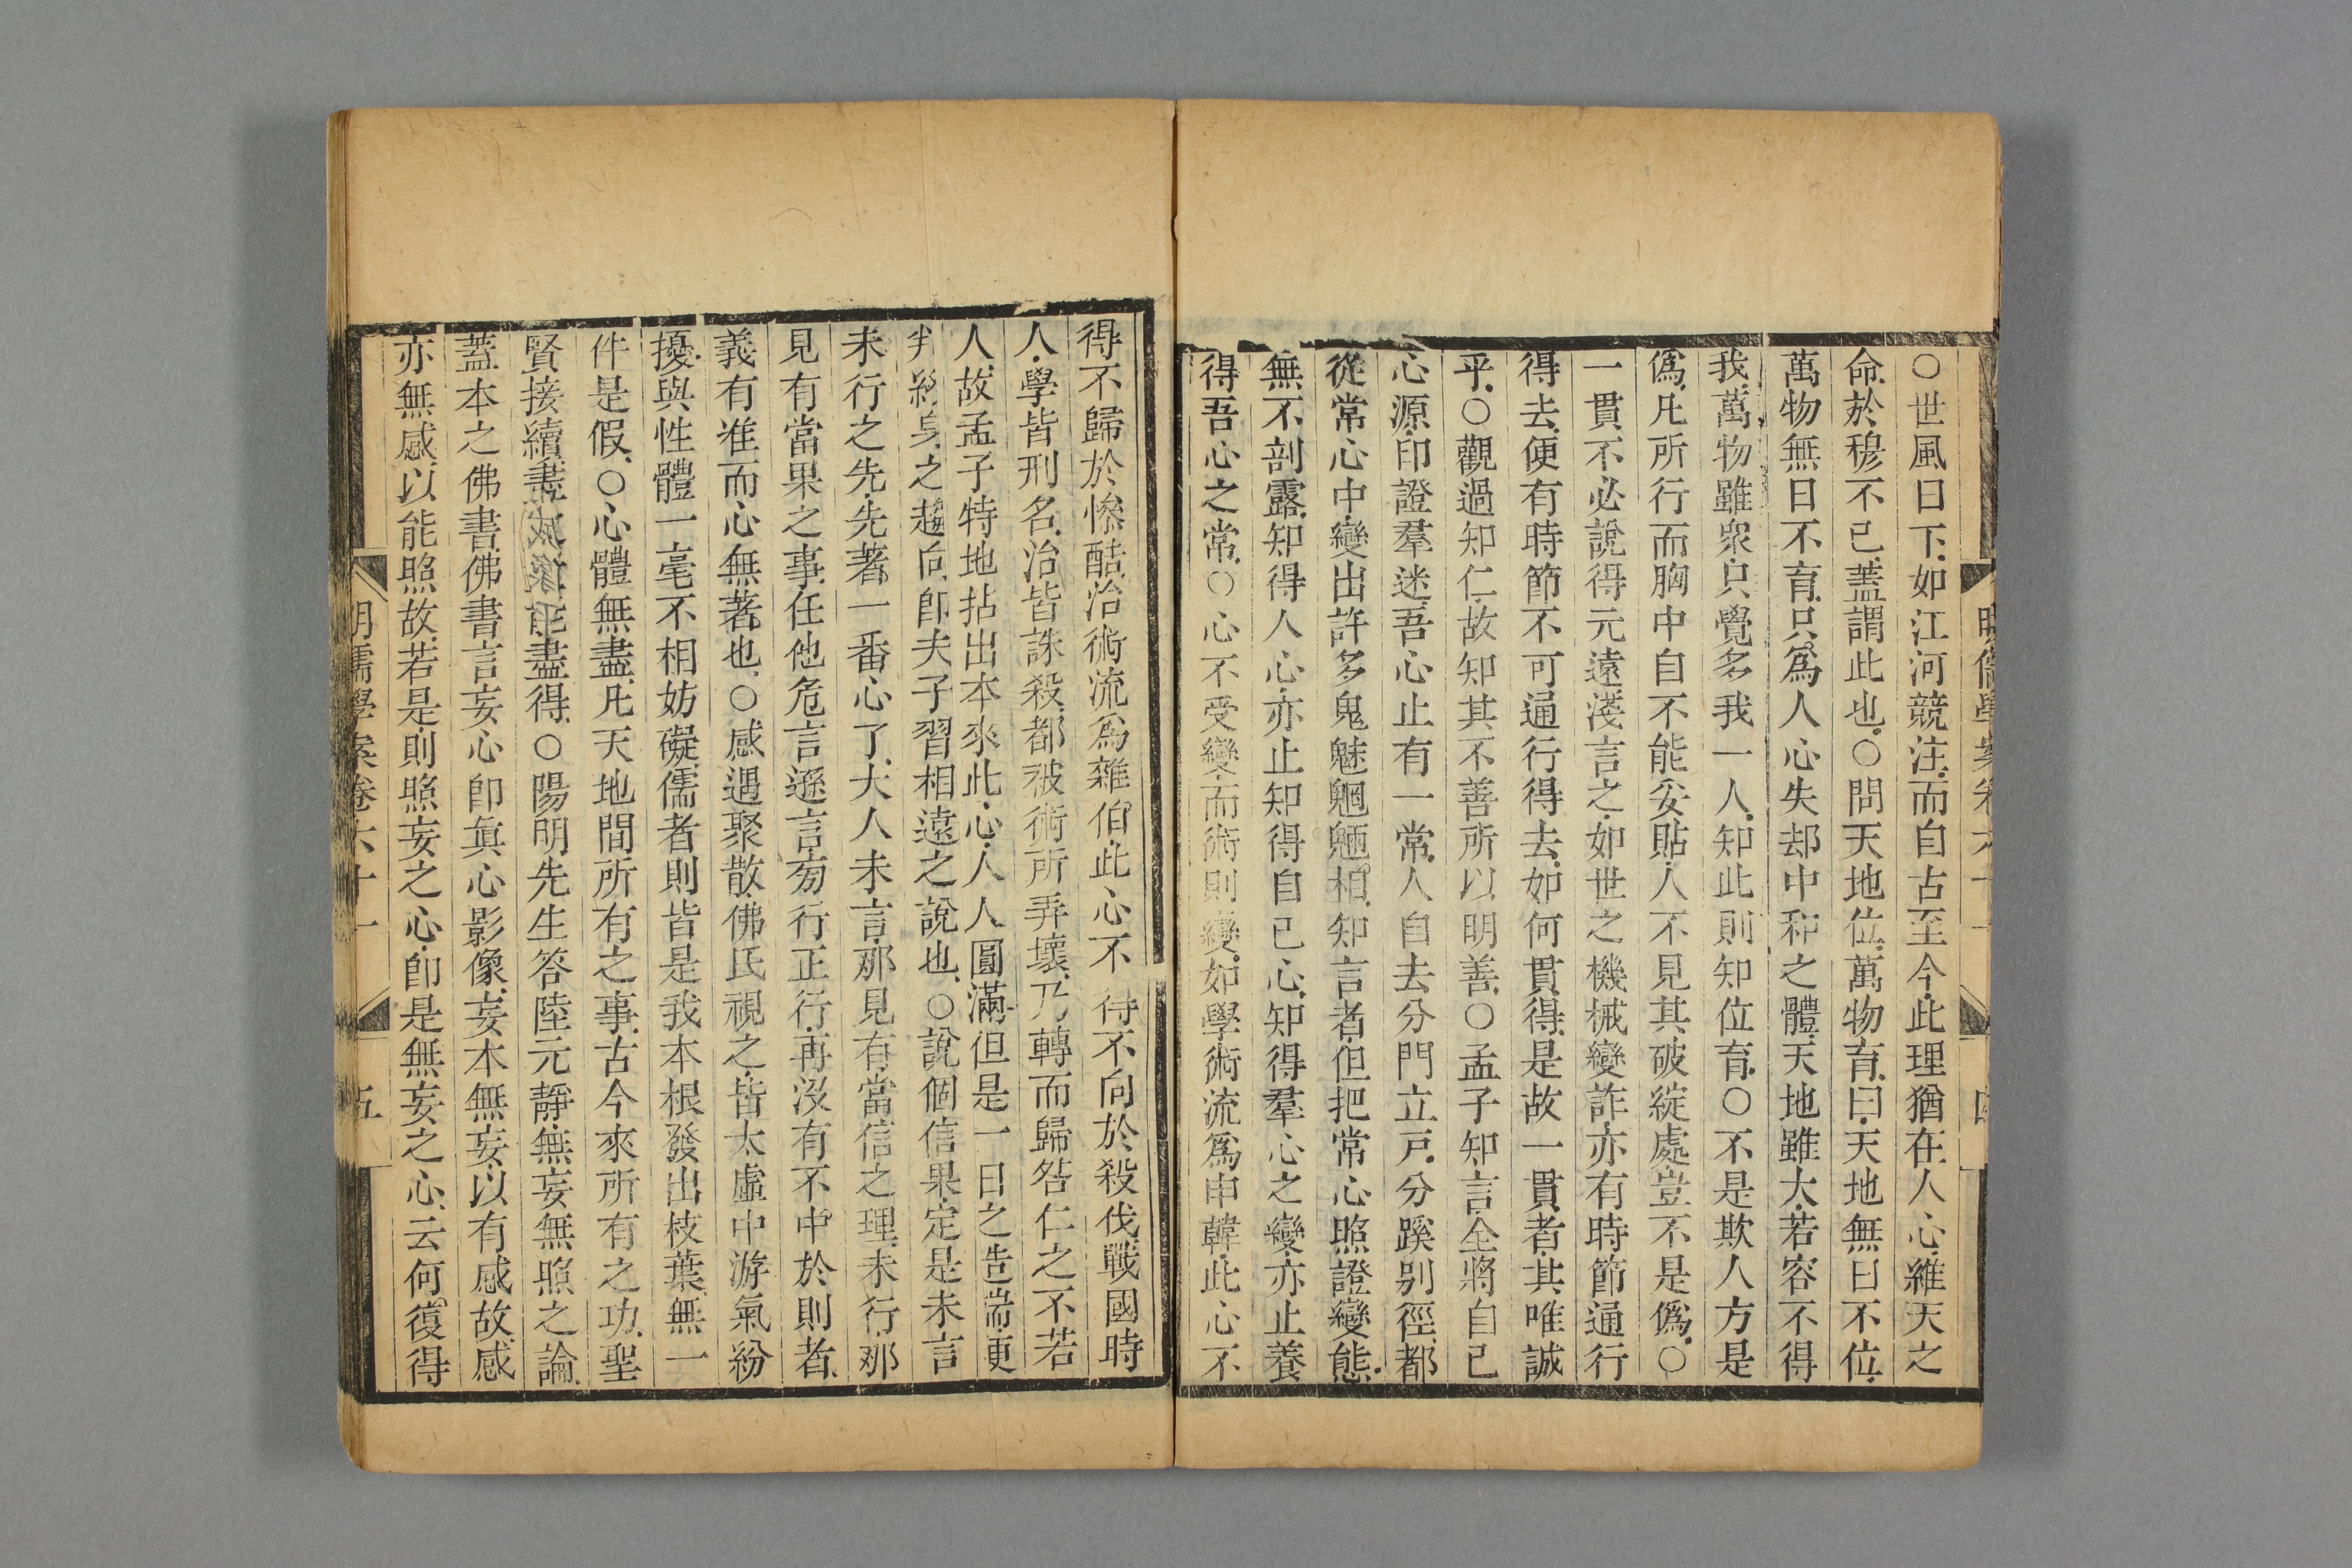 ○世風日下.如江河競注.而自古至今.此理猶在人心.維天之
命.於穆不已.蓋謂此也.○問天地位.萬物育.曰.天地無日不位.
萬物無日不育.只爲人心失却中和之體.天地雖大.若容不得
我.萬物雖衆.只覺多我一人.知此則知位育.○不是欺人方是
僞.凡所行而胸中自不能妥貼.人不見其破綻處.豈不是僞.○
一貫.不必說得元遠.淺言之.如世之機械變詐.亦有時節通行
得去.便有時節不可通行得去.如何貫得.是故一貫者.其唯誠
乎.○觀過知仁.故知其不善.所以明善.○孟子知言.全將自己
心源.印證羣迷.吾心止有一常.人自去分門立戸.分蹊別徑.都
從常心中.變出許多鬼魅魍魎相.知言者.但把常心照證變態.
無不剖露.知得人心.亦止知得自己心.知得羣心之變.亦止養
得吾心之常.○心不受變而術則變.如學術流爲申韓.此心不
得不歸於慘酷.治術流爲雜伯.此心不得不向於殺伐.戰國時
人.學皆刑名.治皆誅殺.都被術所弄壞.乃轉而歸咎仁之不若
人.故孟子特地拈出本來此心.人人圓滿.但是一日之造端.便
判終身之趨向.卽夫子習相遠之說也.○說個信果.定是未言
未行之先.先著一番心了.大人未言.那見有當信之理.未行.那
見有當果之事.任他危言遜言.旁行正行.再沒有不中於則者.
義有准而心無著也.○感遇聚散.佛氏視之.皆太虛中游氣紛
擾.與性體一毫不相妨礙.儒者則皆是我本根發出枝葉.無一
件是假.○心體無盡.凡天地間所有之事.古今來所有之功.聖
賢接續.盡得.○陽明先生答陸元靜.無妄無照之論.
蓋本之佛書.佛書言妄心卽眞心影像.妄本無妄.以有感故.感
亦無感.以能照故.若是.則照妄之心.卽是無妄之心.云何復得
明儒學案卷六十一
五